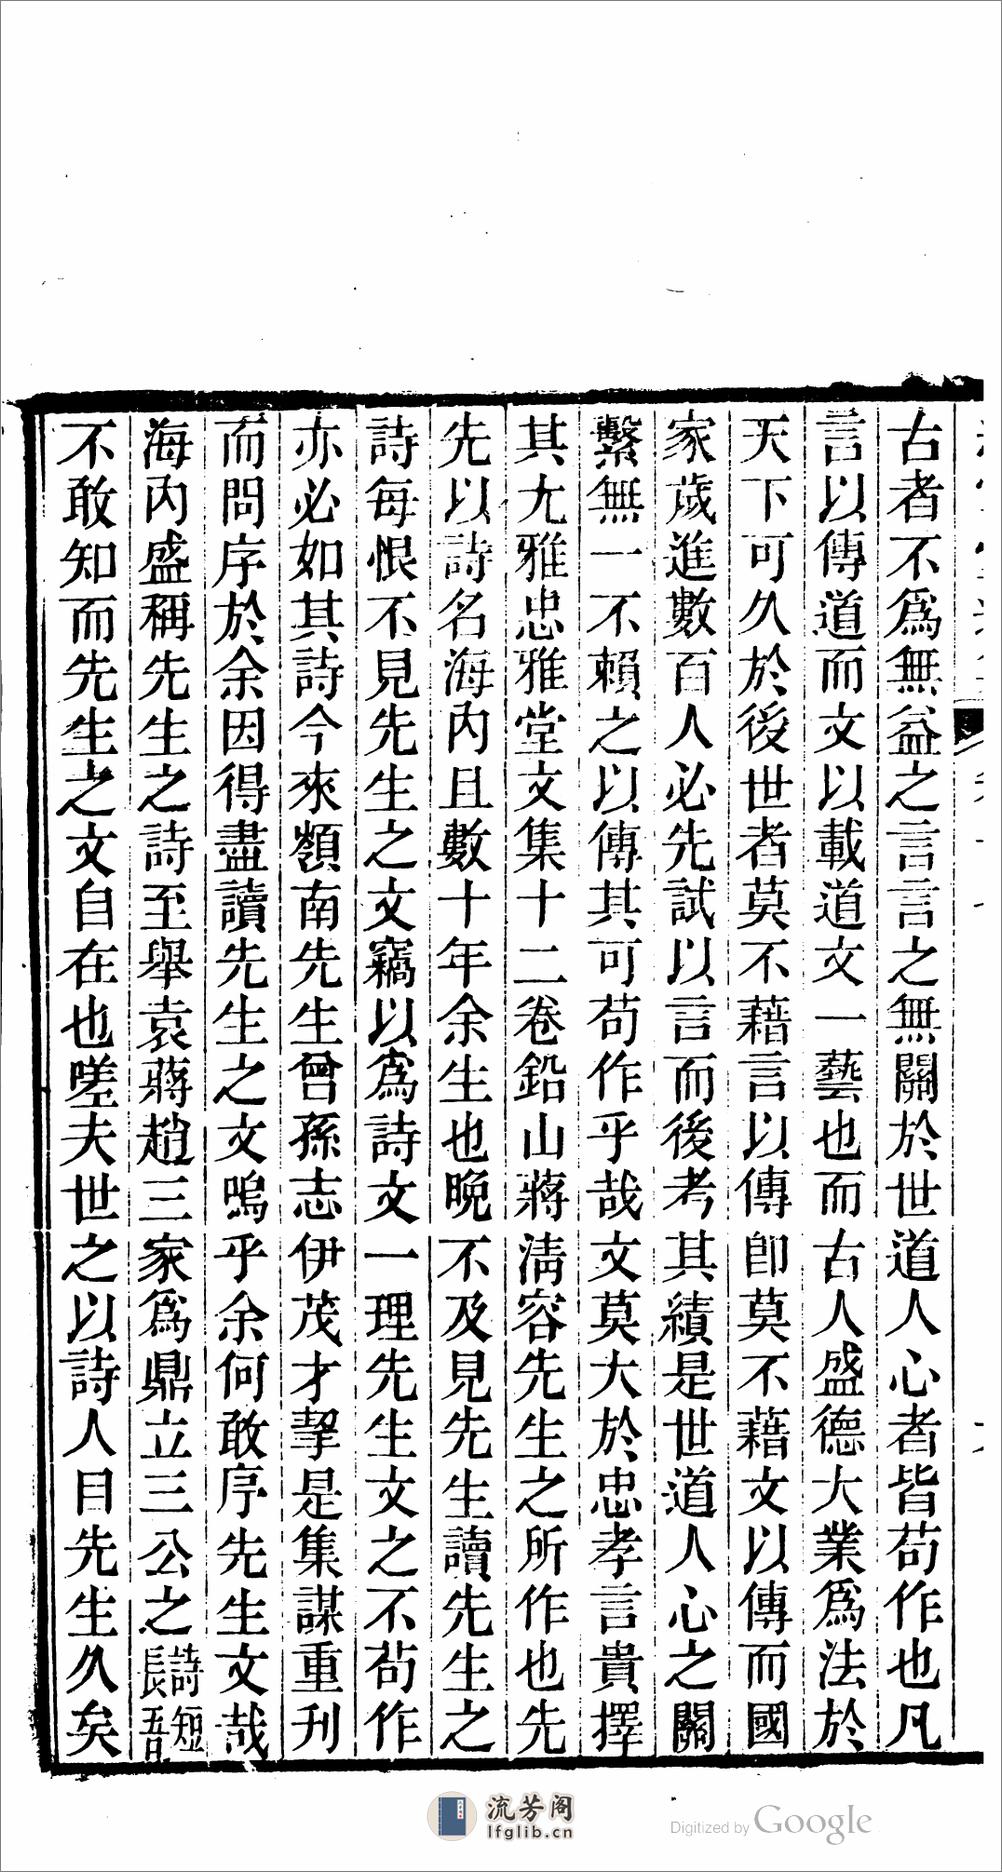 古者不爲無益之言言之無關於世道人心者皆苟作也凡
言以傳道而文以載道文一藝也而古人盛德大業爲法於
天下可久於後世者莫不藉言以傳卽莫不藉文以傳而國
家歲進數百人必先試以言而後考其績是世道人心之關
繫無一不賴之以傳其可苟作乎哉文莫大於忠孝言貴擇
其尤雅忠雅堂文集十二卷鉛山蔣淸容先生之所作也先
先以詩名海內且數十年余生也晩不及見先生讀先生之
詩每恨不見先生之文竊以爲詩文一理先生文之不苟作
亦必如其詩今來嶺南先生曾孫志伊茂才挈是集謀重刊
而問序於余因得盡讀先生之文嗚乎余何敢序先生文哉
海內盛稱先生之詩至舉袁蔣趙三家爲鼎立三公之詩短長吾
不敢知而先生之文自在也嗟夫世之以詩人目先生久矣
流芳阁
lfglib.cn
Digitized by Google